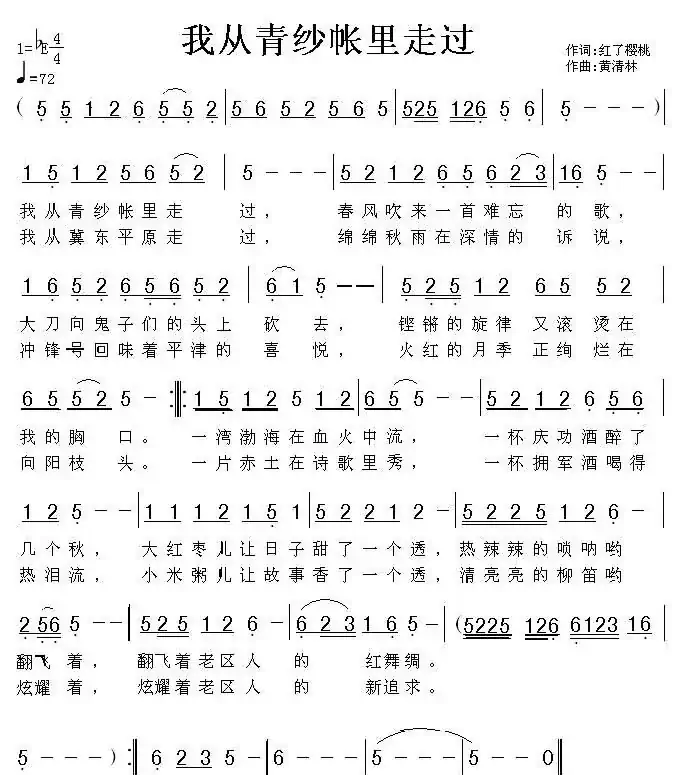 我从青纱帐里走过
1=♭E 4/4
♩=72
作词:红了樱桃
作曲:黄清林
( 5 5 1 2 6 5 5 2 | 5 6 5 2 5 6 2 | 525 126 5 6 | 5 - - - ) |
1 5 1 2 5 6 5 2 | 5 - - - | 5 2 1 2 6 5 6 2 3 | 16 5 - - |
我从青纱帐里走 过, 春风吹来一首难忘 的 歌,
我从冀东平原走 过, 绵绵秋雨在深情的 诉 说,
1 6 5 2 6 5 6 5 2 | 6 1 5 - - | 5 2 5 1 2 6 5 5 2 |
大刀向鬼子们的头上 砍 去, 铿锵的旋律 又滚 烫在
冲锋号回味着平津的 喜 悦, 火红的月季 正绚 烂在
6 5 5 2 5 - :||: 1 5 1 2 2 5 1 2 5 - | 5 2 1 2 6 2 5 6 |
我的胸 口。 一湾渤海在血火中流, 一杯庆功酒醉了
向阳枝 头。 一片赤土在诗歌里秀, 一杯拥军酒喝得
1 2 5 - | 1 1 1 2 1 2 1 5 | 5 2 2 1 2 - | 5 2 2 5 1 2 6 - |
几个秋, 大红枣儿让日子甜了一个透, 热辣辣的唢呐哟
热泪流, 小米粥儿让故事香了一个透, 清亮亮的柳笛哟
2 56 5 - - | 5 2 5 1 2 6 - | 6 2 3 5 1 2 - - | (5225 126 6123 16 |
翻飞 着, 翻飞着老区人 的 红舞绸。
炫耀 着, 炫耀着老区人 的 新追求。
5 - - - ) :| 6 2 3 5 - | 6 - - - | 5 - - - | 5 - - 0 ||